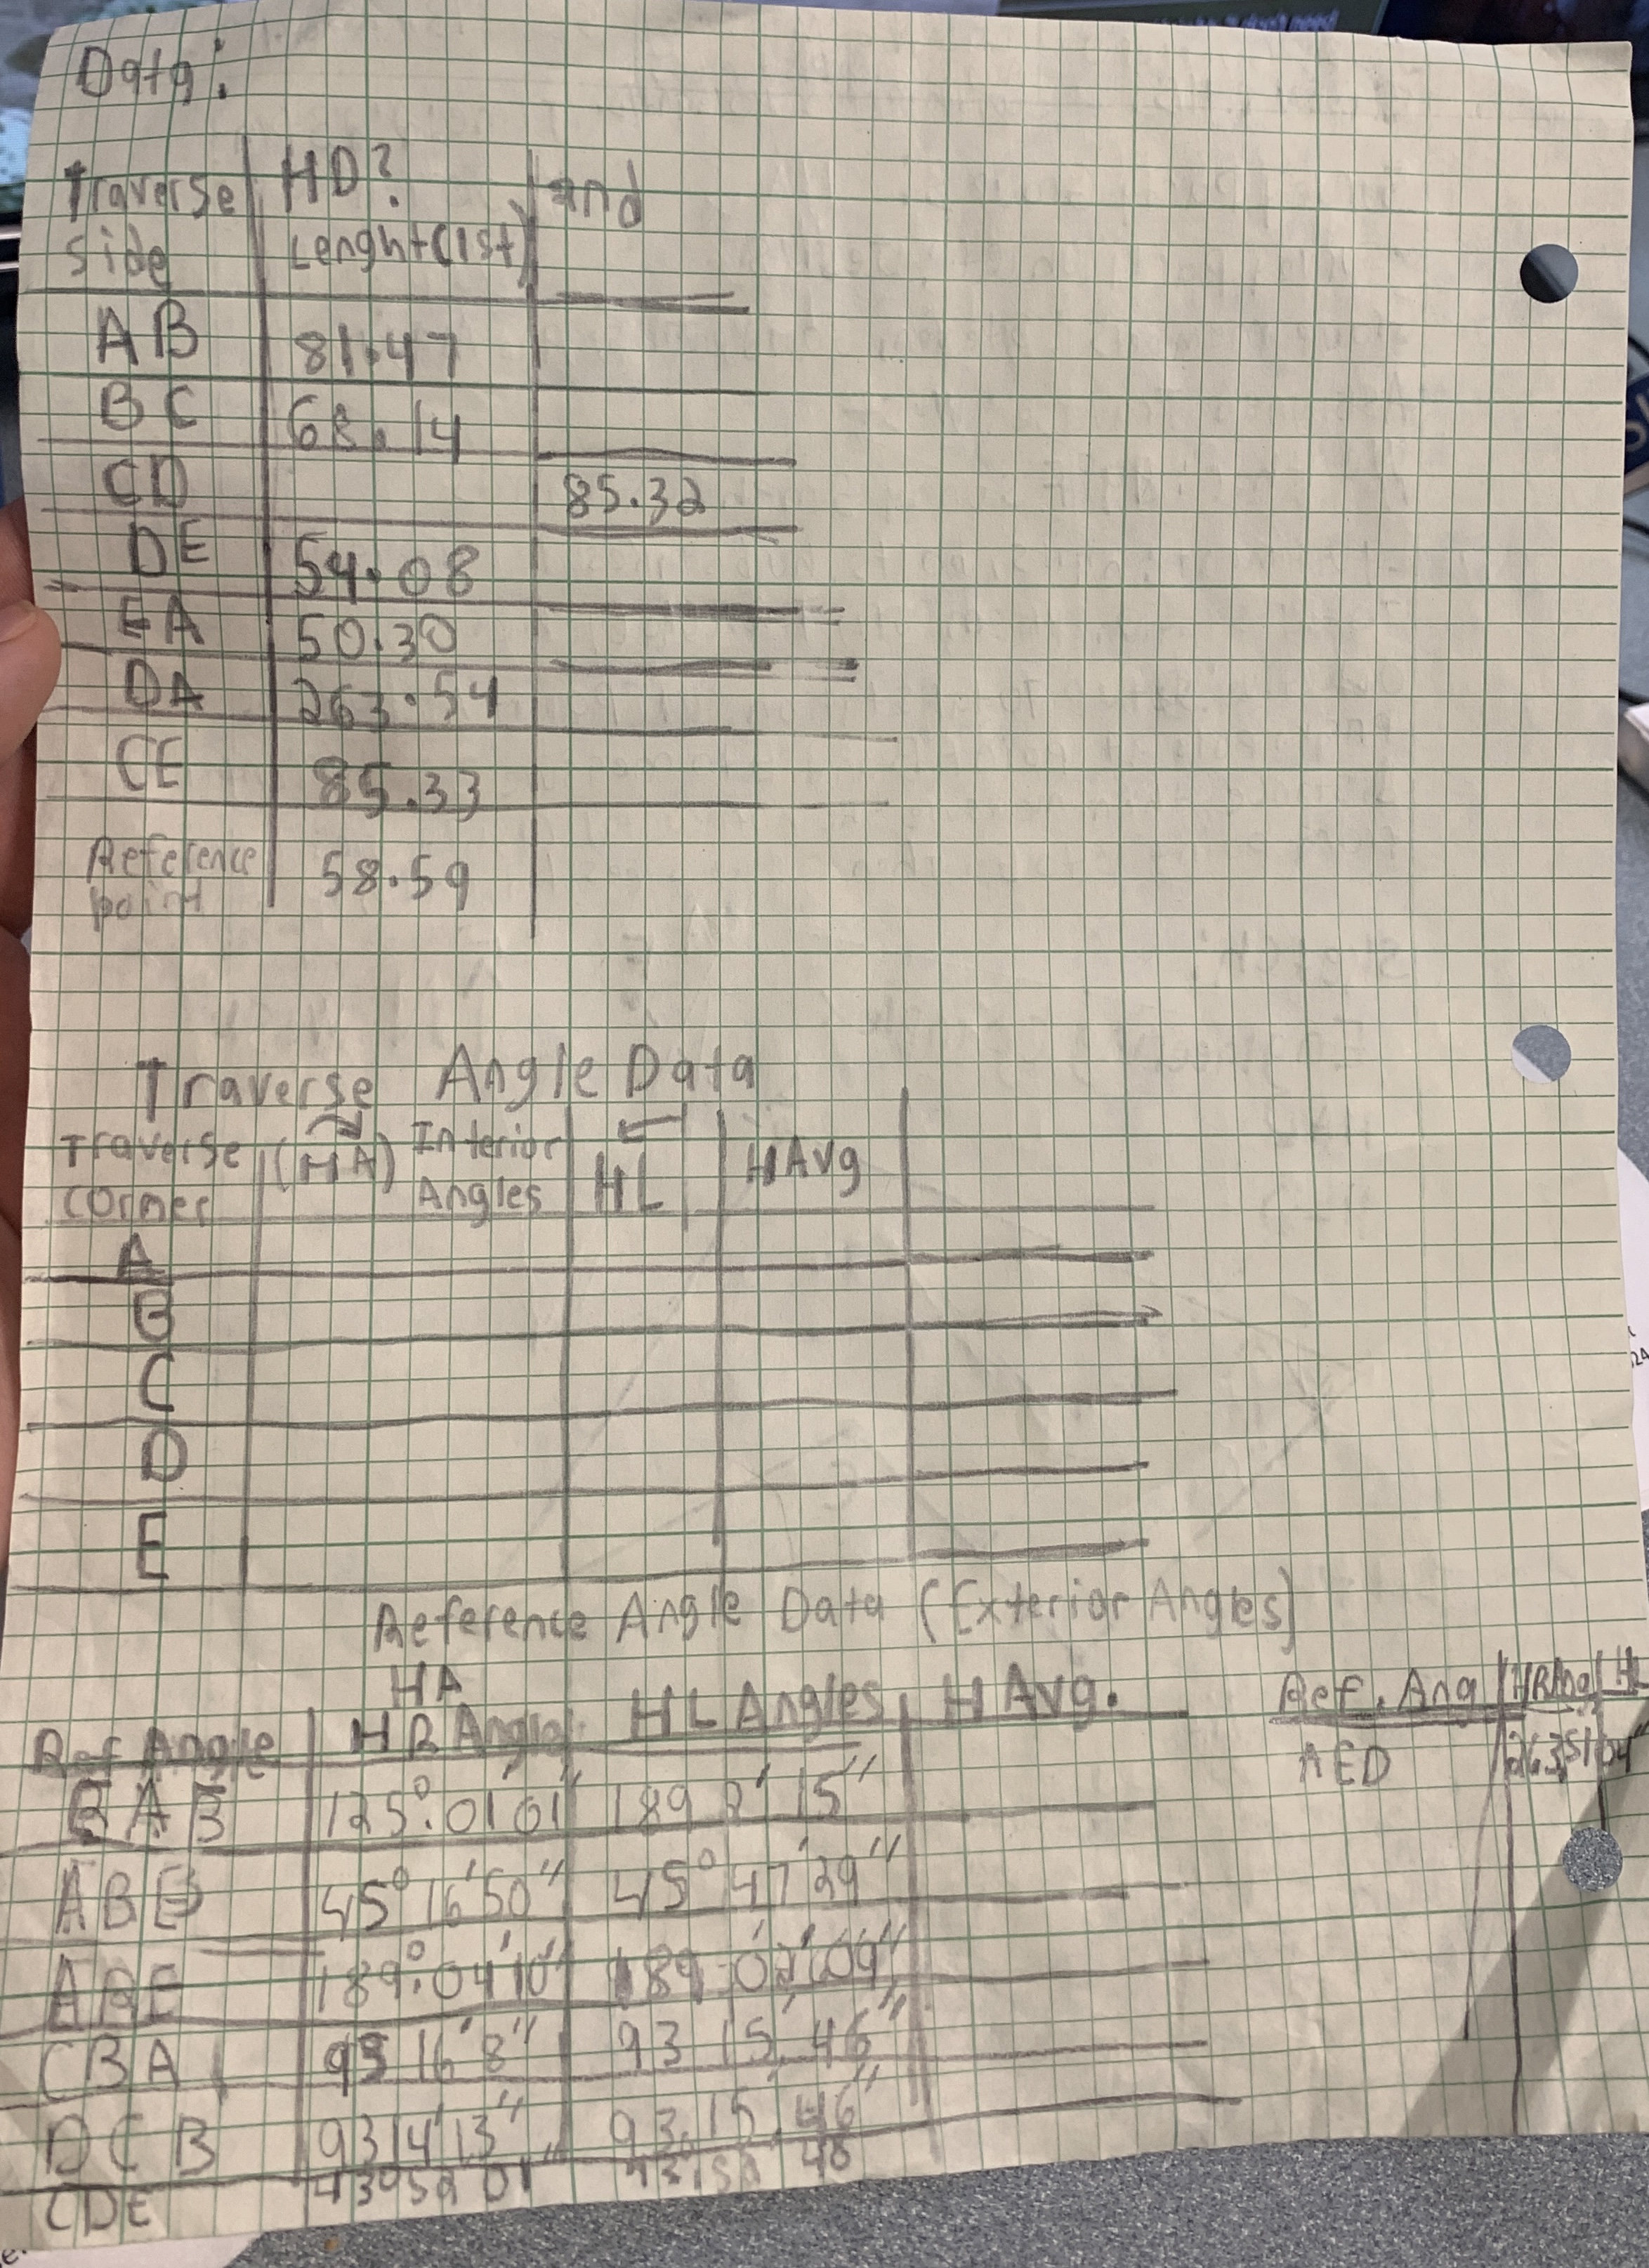 Data:
Traverse side | HD? Lenght(1st) | and
AB | 81.47
BC | 68.14
CD | | 85.32
DE | 54.08
EA | 50.30
DA | 263.54
CE | 85.33
Reference point | 58.59
Traverse Angle Data
Traverse corner | (HA) Interior Angles | HL | HAvg
A
B
C
D
E
Reference Angle Data (Exterior Angles)
Ref Angle | HA HR Angle | HL Angles | H Avg.
BAB | 125°.01'01" | 189 2' 15"
ABE | 45° 16' 50" | 45° 47' 29"
ABE | 189°.04'10" | 189 02' 09"
CBA | 93 16' 8" | 93 15' 46"
DCB | 93 14' 13" | 93.15' 46"
CDE | 43°59 01"
Ref. Ang | HRAng | HL
AED | 263,51 04"